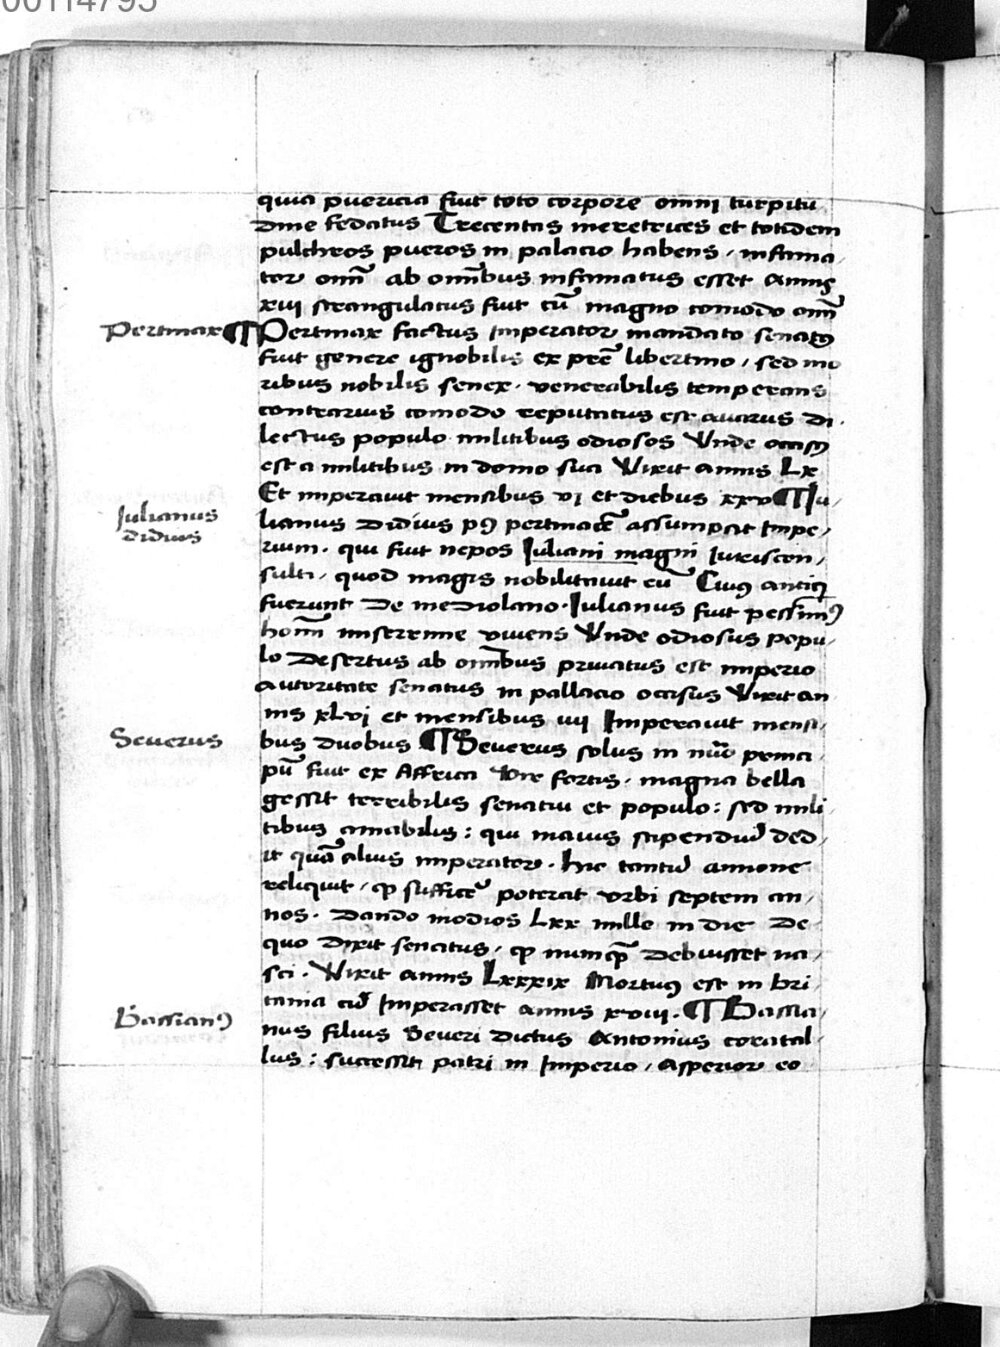 00114795
quia puericia fuit toto corpore omni turpitu
dine fedatus Trecentas meretrices et totidem
pulchros pueros in palacio habens, infama
tor om̄ī ab om̄ibus infamatus esset Annis
xiii strangulatus fuit cū magno comodo om̄ī
Pertinax
¶ Pertinax factus imperator mandato senatus
fuit genere ignobilis ex pr̄e libertino, sed mo
ribus nobilis senex. venerabilis temperans
contrarius comodo reputatus est auarus di
lectus populo militibus odiosos Vnde occisꝰ
est a militibus in domo sua Vixit annis Lx
Et imperauit mensibus vi et diebus xxv ¶ Iu
Iulianus
didius
lianus Didius pꝰ pertinacē assumpsit Impe,
rium. qui fuit nepos Iuliani magni Iuriscon,
sulti, quod magis nobilitauit eū Cuiꝰ antiqi
fuerunt De mediolano. Iulianus fuit pessimꝰ
hom̄ miserrime viuens Vnde odiosus popu
lo Desertus ab om̄ibus priuatus est imperio
Autoritate senatus in pallacio occisus Vixit an
nis xLvi et mensibus iiii Imperauit mensi,
Seuerus
bus duobus ¶ Seuerus solus in nūo princi
pū fuit ex Affrica Vir fortis. magna bella
gessit terribilis senatui et populo: sed mili
tibus amabilis: qui maius stipendiū ded
it quā alius imperator. hic tantū annone
reliquit, ꝙ sufficeꝰ poterat vrbi septem an,
nos. Dando modios Lxx mille in die De
quo Dixit senatus, ꝙ nunqꝫ Debuisset na,
sci. Vixit annis Lxxxix Mortuꝰ est in bri
Bassianꝰ
tania cū Imperasset annis xviii. ¶ Bassia
nus filius Seueri dictus Antonius coracal
lus: successit patri in Imperio, Asperior eo